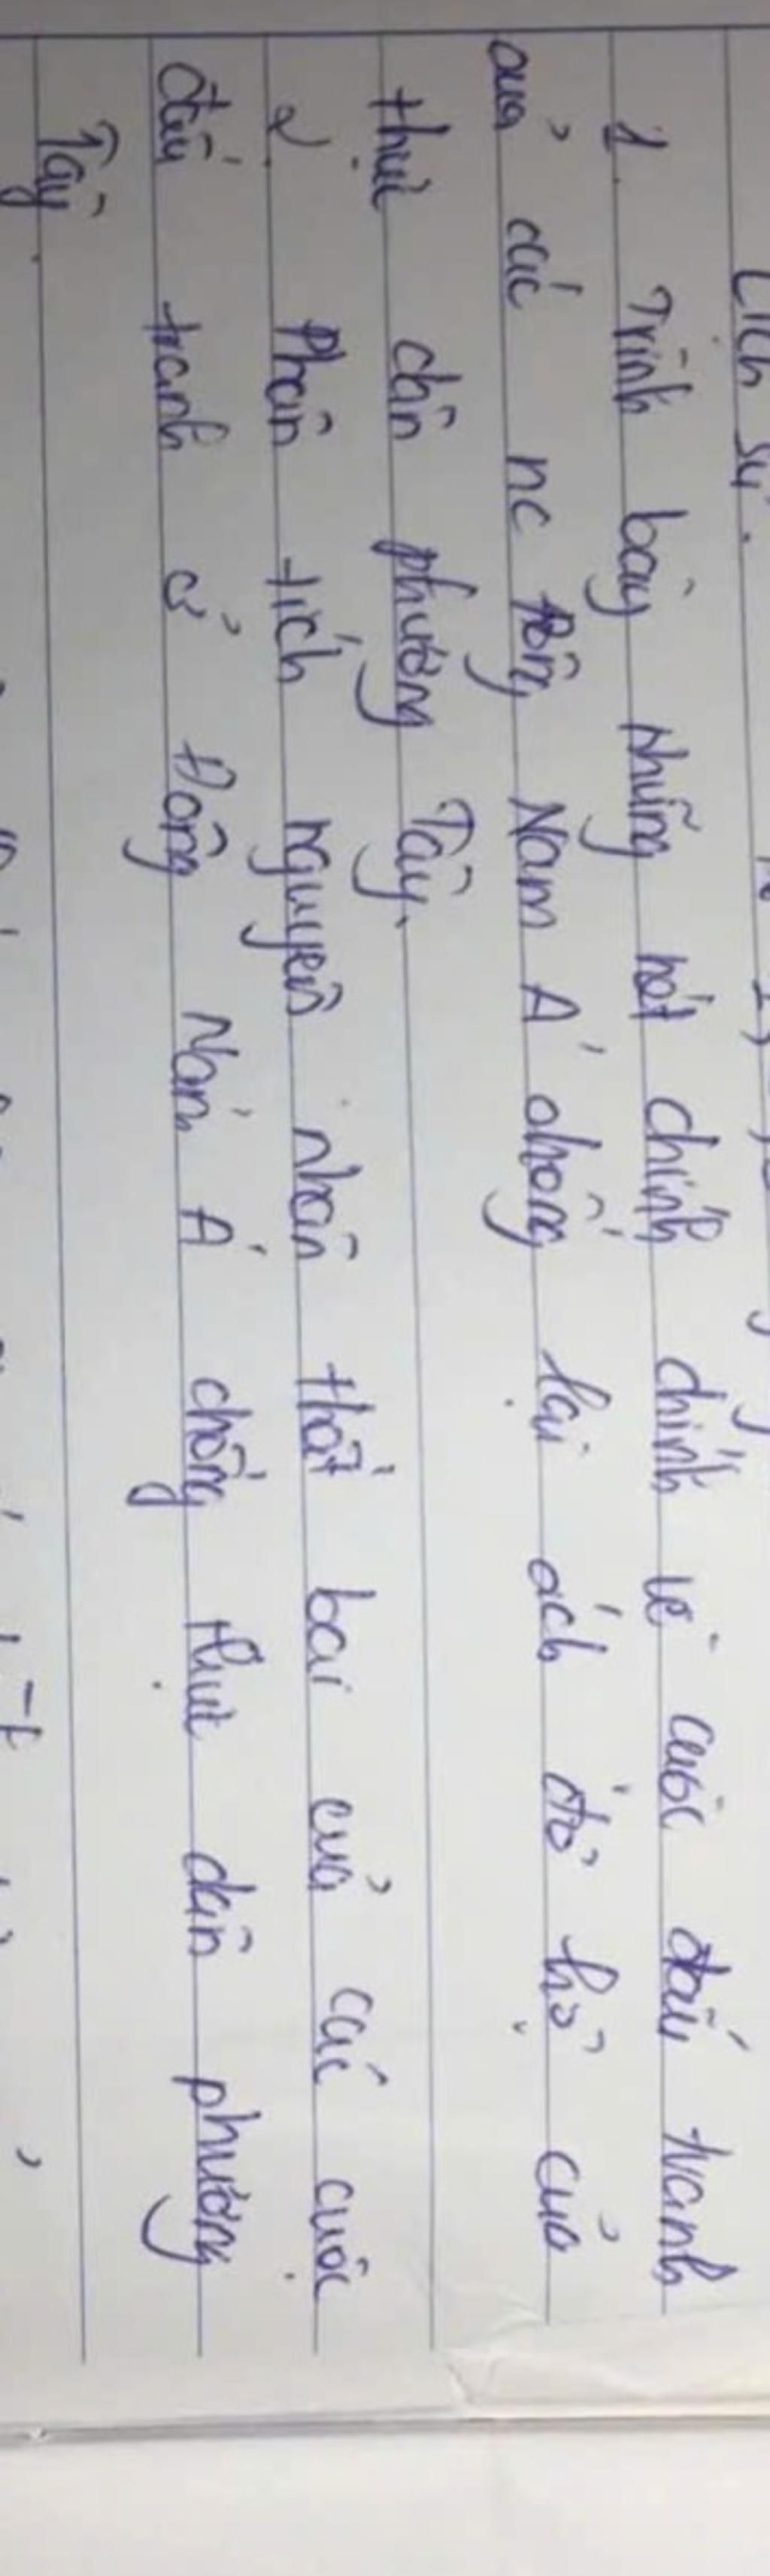 Lịch sử.
1. Trình bày những nét chính chính về cuộc đấu tranh
của các nc Đông Nam Á chống lại ách đô hộ của
thực dân phương Tây.
2. Phân tích nguyên nhân thất bại của các cuộc
đấu tranh ở Đông Nam Á chống thực dân phương
Tây.